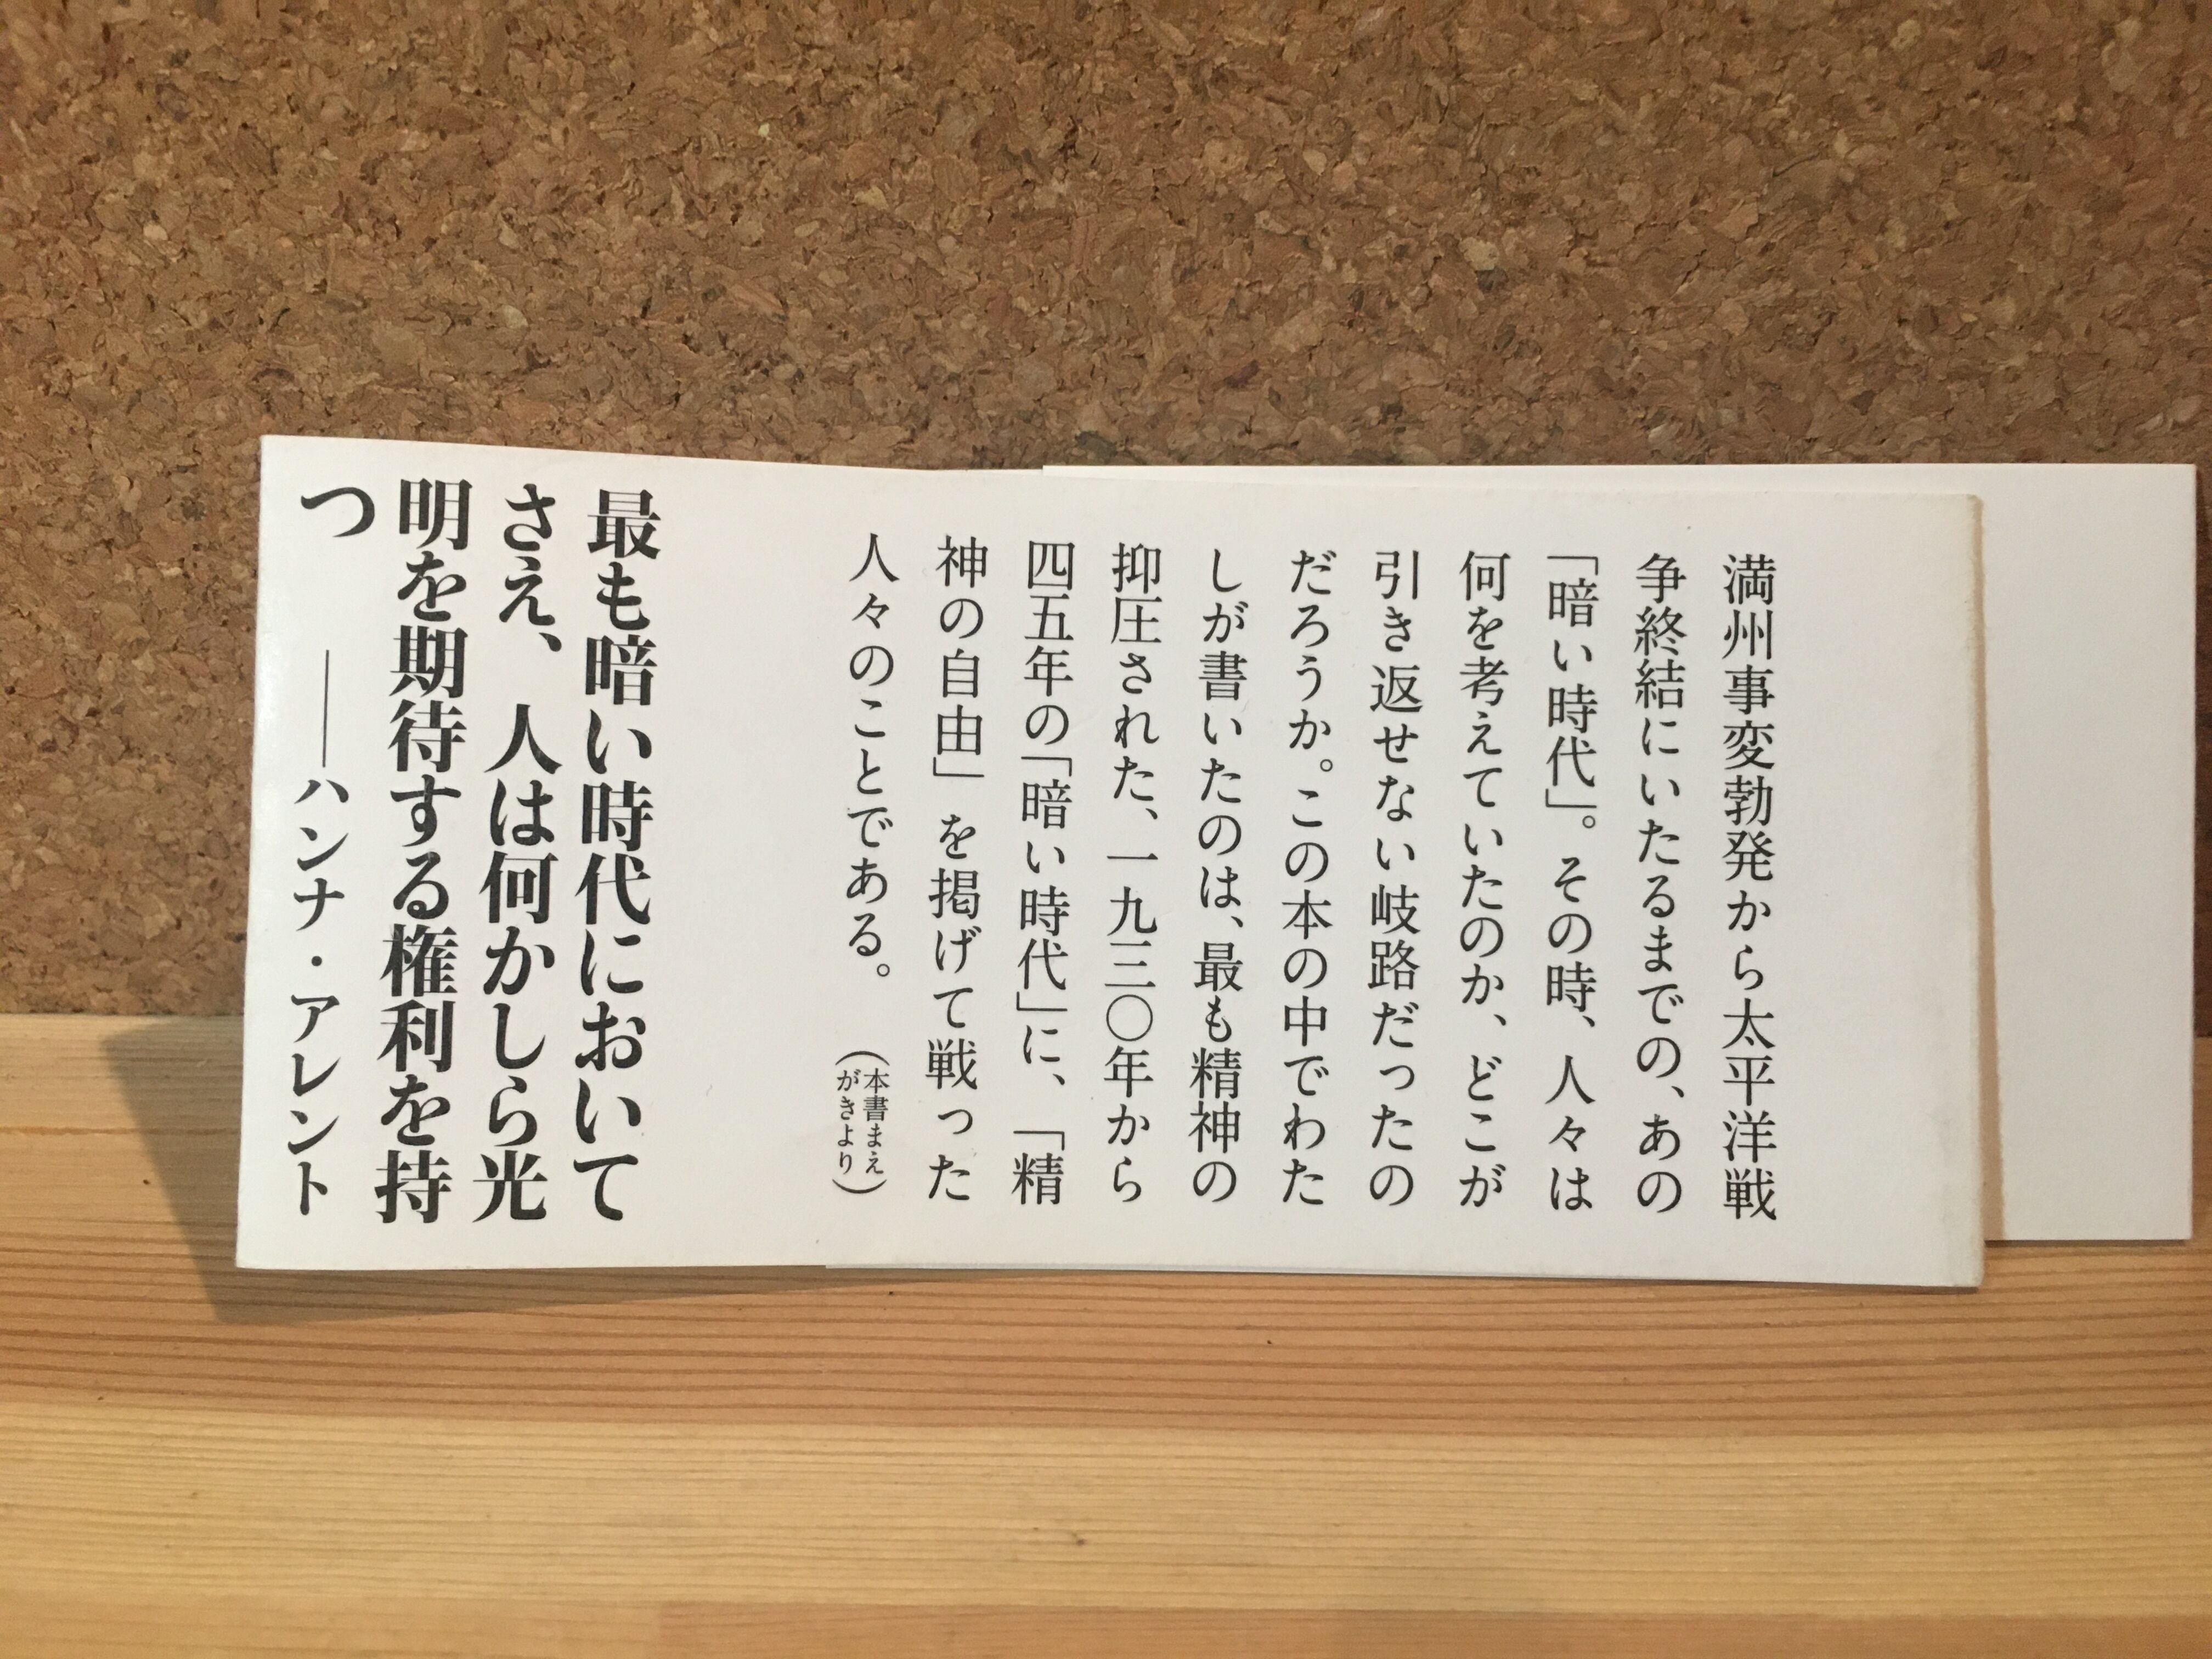 満州事変勃発から太平洋戦
争終結にいたるまでの、あの
「暗い時代」。その時、人々は
何を考えていたのか、どこが
引き返せない岐路だったの
だろうか。この本の中でわた
しが書いたのは、最も精神の
抑圧された、一九三〇年から
四五年の「暗い時代」に、「精
神の自由」を掲げて戦った
人々のことである。
（本書まえ
がきより）
最も暗い時代において
さえ、人は何かしら光
明を期待する権利を持
つ ――ハンナ・アレント